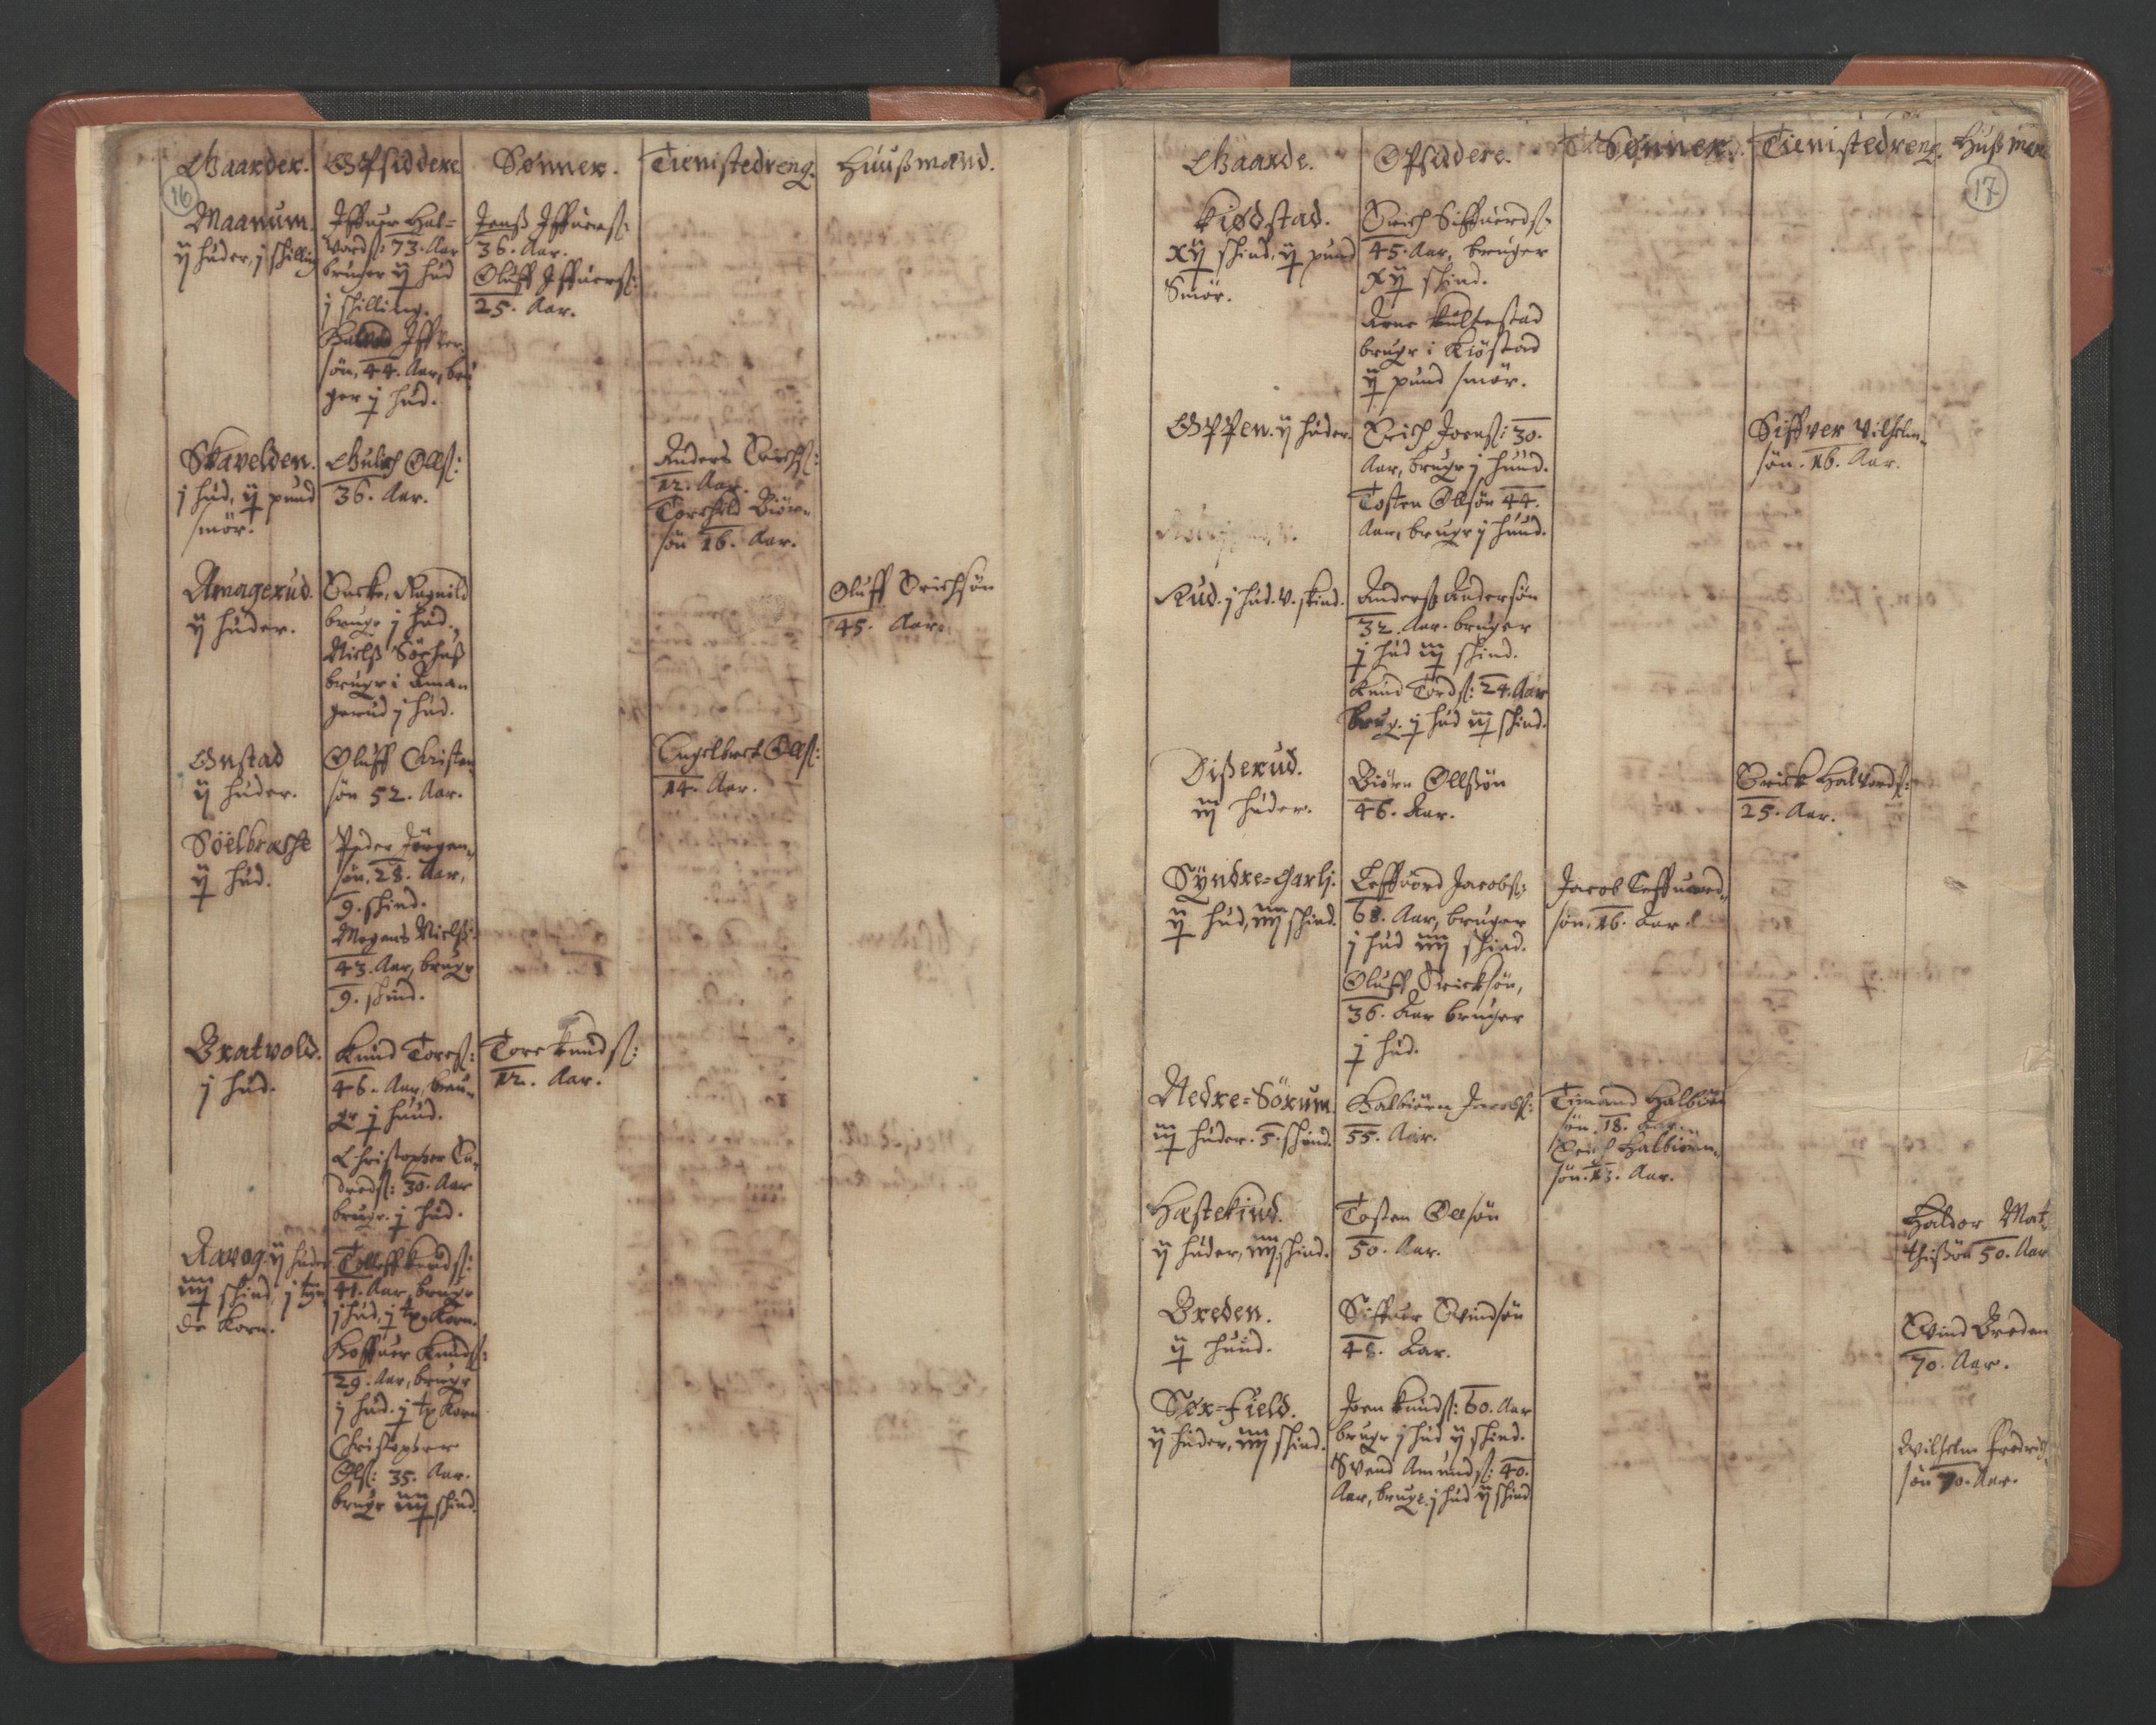 Gaarder. Opsiddere Sønner. Tienistedreng. Huusmænd.
16
Maanum.
ij huder, j skilling
Iffuer Hal-
vords: 73. Aar
bruger ij hud
j skilling.
Halvord Iffver
søn, 44. Aar, bru
ger j hud.
Jens Iffuers:
36. Aar.
Oluff Iffuers:
25. Aar.
Skavelden.
j hud, ij pund
smör.
Gulich Olls:
36. Aar.
Anders Erichs:
12. Aar.
Torchild Biörn
søn 16. Aar.
Amagerud.
ij huder.
Encke, Ragnild
brugr j hud.
Niels Sörhus
brugr i Aman
gerud j hud.
Oluff Erichsøn
45. Aar.
Onstad
ij huder.
Oluff Christen
søn 52. Aar.
Engelbret Olls:
14. Aar.
Söelbrache
ij hud.
Peder Jörgen
søn, 28. Aar,
9. skind.
Mogens Niels:
43. Aar, brugr
9. skind.
Bratvold.
j hud.
Knud Tores:
46. Aar, bru-
gr j huud.
Christopher En
dreds: 30. Aar
brugr. j hud.
Tore Knuds:
12. Aar.
Ravog. ij huder
iiij skind, j tyn
de Korn.
Tolleff Knuds:
41. Aar, brugr
j hud, j tp Korn.
Koffuer Knuds:
29. Aar, brugr
j hud. j tp Korn
Christopher
Ols: 35. Aar.
brugr iiij skind.
Gaarde. Opsidere. Sønner. Tienistedreng. Husmen
17
Kiødstad.
xij skind, ij pund
Smör.
Erich Siffuerds:
45. Aar, bruger
xij skind.
Arne Kultestad
brugr i Kiöstad
ij pund smör.
Oppen. ij huder.
Erich Joens: 30.
Aar, brugr j huud.
Tosten Ollsön 44.
Aar, brugr j huud.
Siffver Vilhelm
søn. 16. Aar.
Rud. j hud. v. skind.
Anders Andersøn
32. Aar. bruger
j hud iij skind.
Knud Tords: 24. Aar
brug. j hud iij skind.
Disserud.
iij huder.
Biörn Ollssøn
46. Aar.
Erick Halvords:
25. Aar.
Syndre-Garli.
ij hud, iiij skind.
Leffuord Jacobs:
68. Aar, bruger
j hud iiij skind.
Oluff Ericksøn,
36. Aar bruger
j hud.
Jacob Leffuord
søn. 16. Aar.
Nedre-Sörum.
iij huder. 5. skind.
Halbiörn Jacobs:
55. Aar.
Timand Halbiörn
søn. 18. Aar.
Erich Halbiörn
søn. 13. Aar.
Hæstekind.
ij huder, iiij. skind.
Tosten Ollsøn
50. Aar.
Haldor Mat
thissøn 50. Aar
Breden.
ij huud.
Siffuer Evindsøn
48. Aar.
Evind Breden
70. Aar.
Sør-field.
ij huder, iiij skind.
Joen Knuds: 60. Aar
brugr j hud ij skind.
Svend Amunds: 40.
Aar, brugr. j hud ij skind
Wilhelm Fredrig
søn 70. Aar.